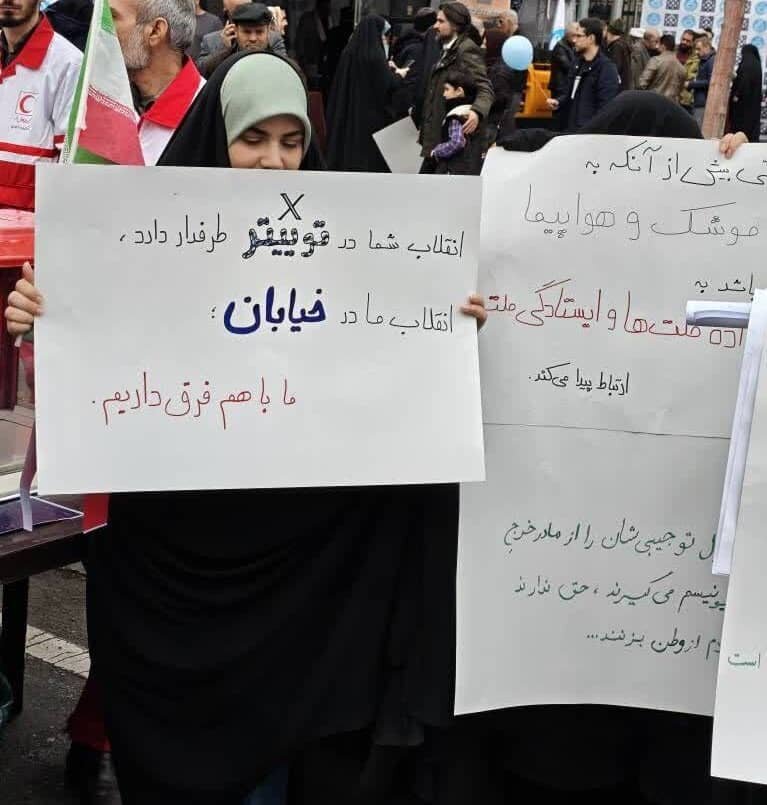 X
انقلاب شما در توییتر طرفدار دارد،
انقلاب ما در خیابان؛
ما با هم فرق داریم.
بیش از آنکه به
موشک و هواپیما
باشد به
ملت‌ها و ایستادگی ملت
ارتباط پیدا می‌کند.
توجیبی‌شان را از مادرخرج
می‌گیرند، حق ندارند
از وطن بزنند...
است